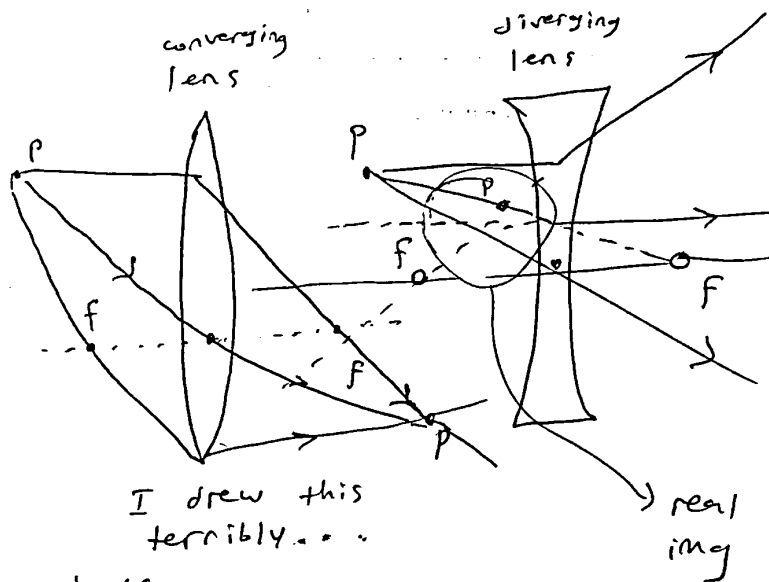 converging
lens
diverging
lens
P
f
f
P
P
P
f
f
I drew this
terribly....
real
img